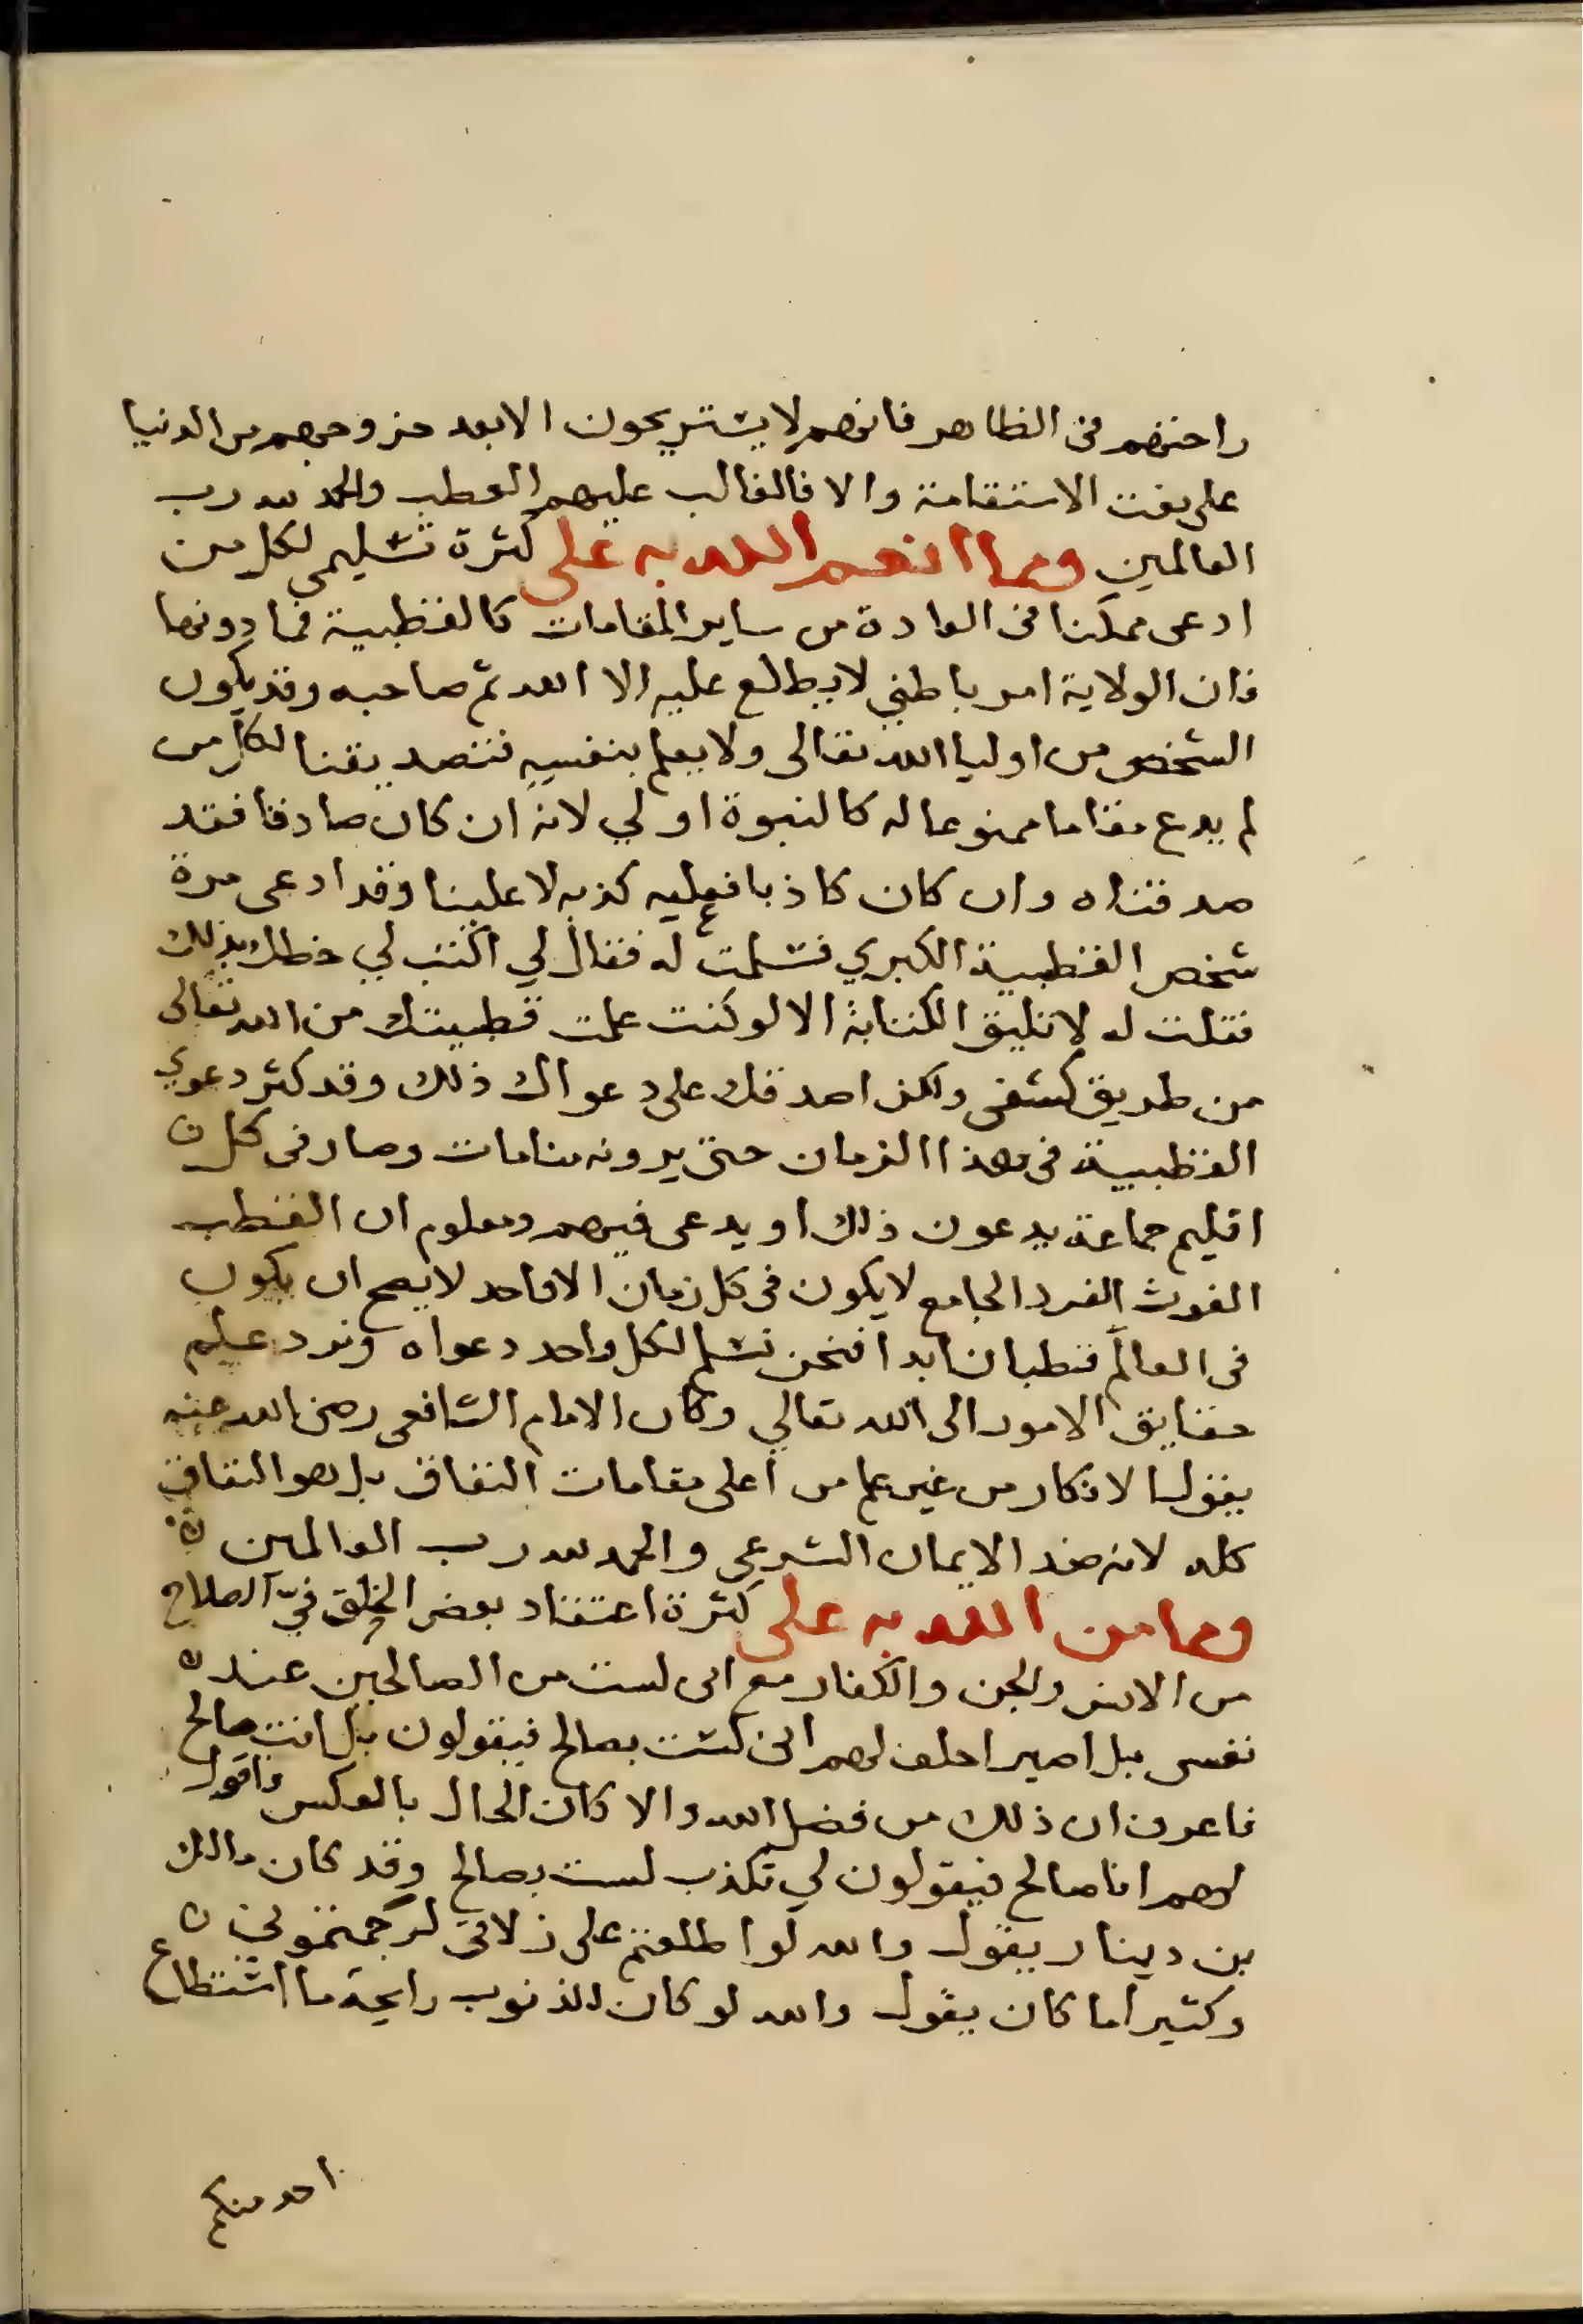 راحتهم فى الظاهر فانهم لا يستريحون الا بعد خروجهم من الدنيا
على نعت الاستقامة والا فالغالب عليهم العطب والحمد لله رب
العالمين ومما انعم الله به على كثرة تسليمى لكل من
ادعى ممكنا فى العادة من ساير المقامات كالقطبية فما دونها
فان الولاية امر باطنى لا يطلع عليه الا الله ثم صاحبه وقد يكون
الشخص من اوليا الله تعالى ولا يعلم بنفسه فتصديقنا لكل من
لم يدع مقاما ممنوعا له كالنبوة اولي لانه ان كان صادقا فقد
صدقناه وان كان كاذبا فعليه كذبه لا علينا وقد ادعى مرة
شخص القطبية الكبري فسلمت له فقال لي اكتب لي خطك بذلك
فقلت له لا تليق الكتابة الا لو كنت علمت قطبيتك من الله تعالى
من طريق كشفى ولكن اصدقك على دعواك ذلك وقد كثر دعوي
القطبية فى هذا الزمان حتى يرونه منامات وصار فى كل
اقليم جماعة يدعون ذلك او يدعى فيهم ومعلوم ان القطب
الغوث الفرد الجامع لا يكون فى كل زمان الا واحد لا يصح ان يكون
فى العالم قطبان ابدا فنحن نسلم لكل واحد دعواه ونرد علم
حقايق الامور الى الله تعالي وكان الامام الشافعى رضى الله عنه
يقول الانكار من غير علم من اعلى مقامات النفاق بل هو النفاق
كله لانه ضد الايمان الشرعى والحمد لله رب العالمين
ومما من الله به على كثرة اعتقاد بعض الخلق فيّ الصلاح
من الانس والجن والكفار مع انى لست من الصالحين عند
نفسى بل اصير احلف لهم انى لست بصالح فيقولون بل انت صالح
فاعرف ان ذلك من فضل الله والا كان الحال بالعكس واقول
لهم انا صالح فيقولون لي تكذب لست بصالح وقد كان مالك
بن دينار يقول والله لو اطلعتم على زلاتى لرجمتمونى
وكثيرا ما كان يقول والله لو كان للذنوب رايحة ما استطاع
احد منكم